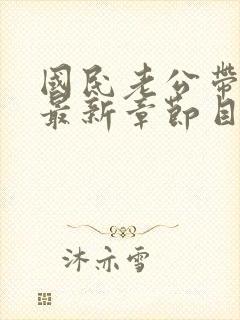 國民老公帶
最新章節目
沐亦雪